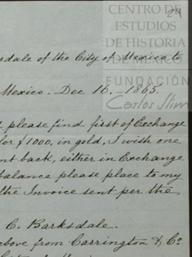 24
CENTRO DE
ESTUDIOS
DE HISTORIA
DE
FUNDACIÓN
Carlos Slim
rdale of the City of Mexico to
Mexico. Dec 16.—1865.
please find first of Exchange
for $1000, in gold, I wish one
nt back, either in Exchange
balance please place to my
the Invoice sent per the
C. Barksdale.
above from Carrington & Co